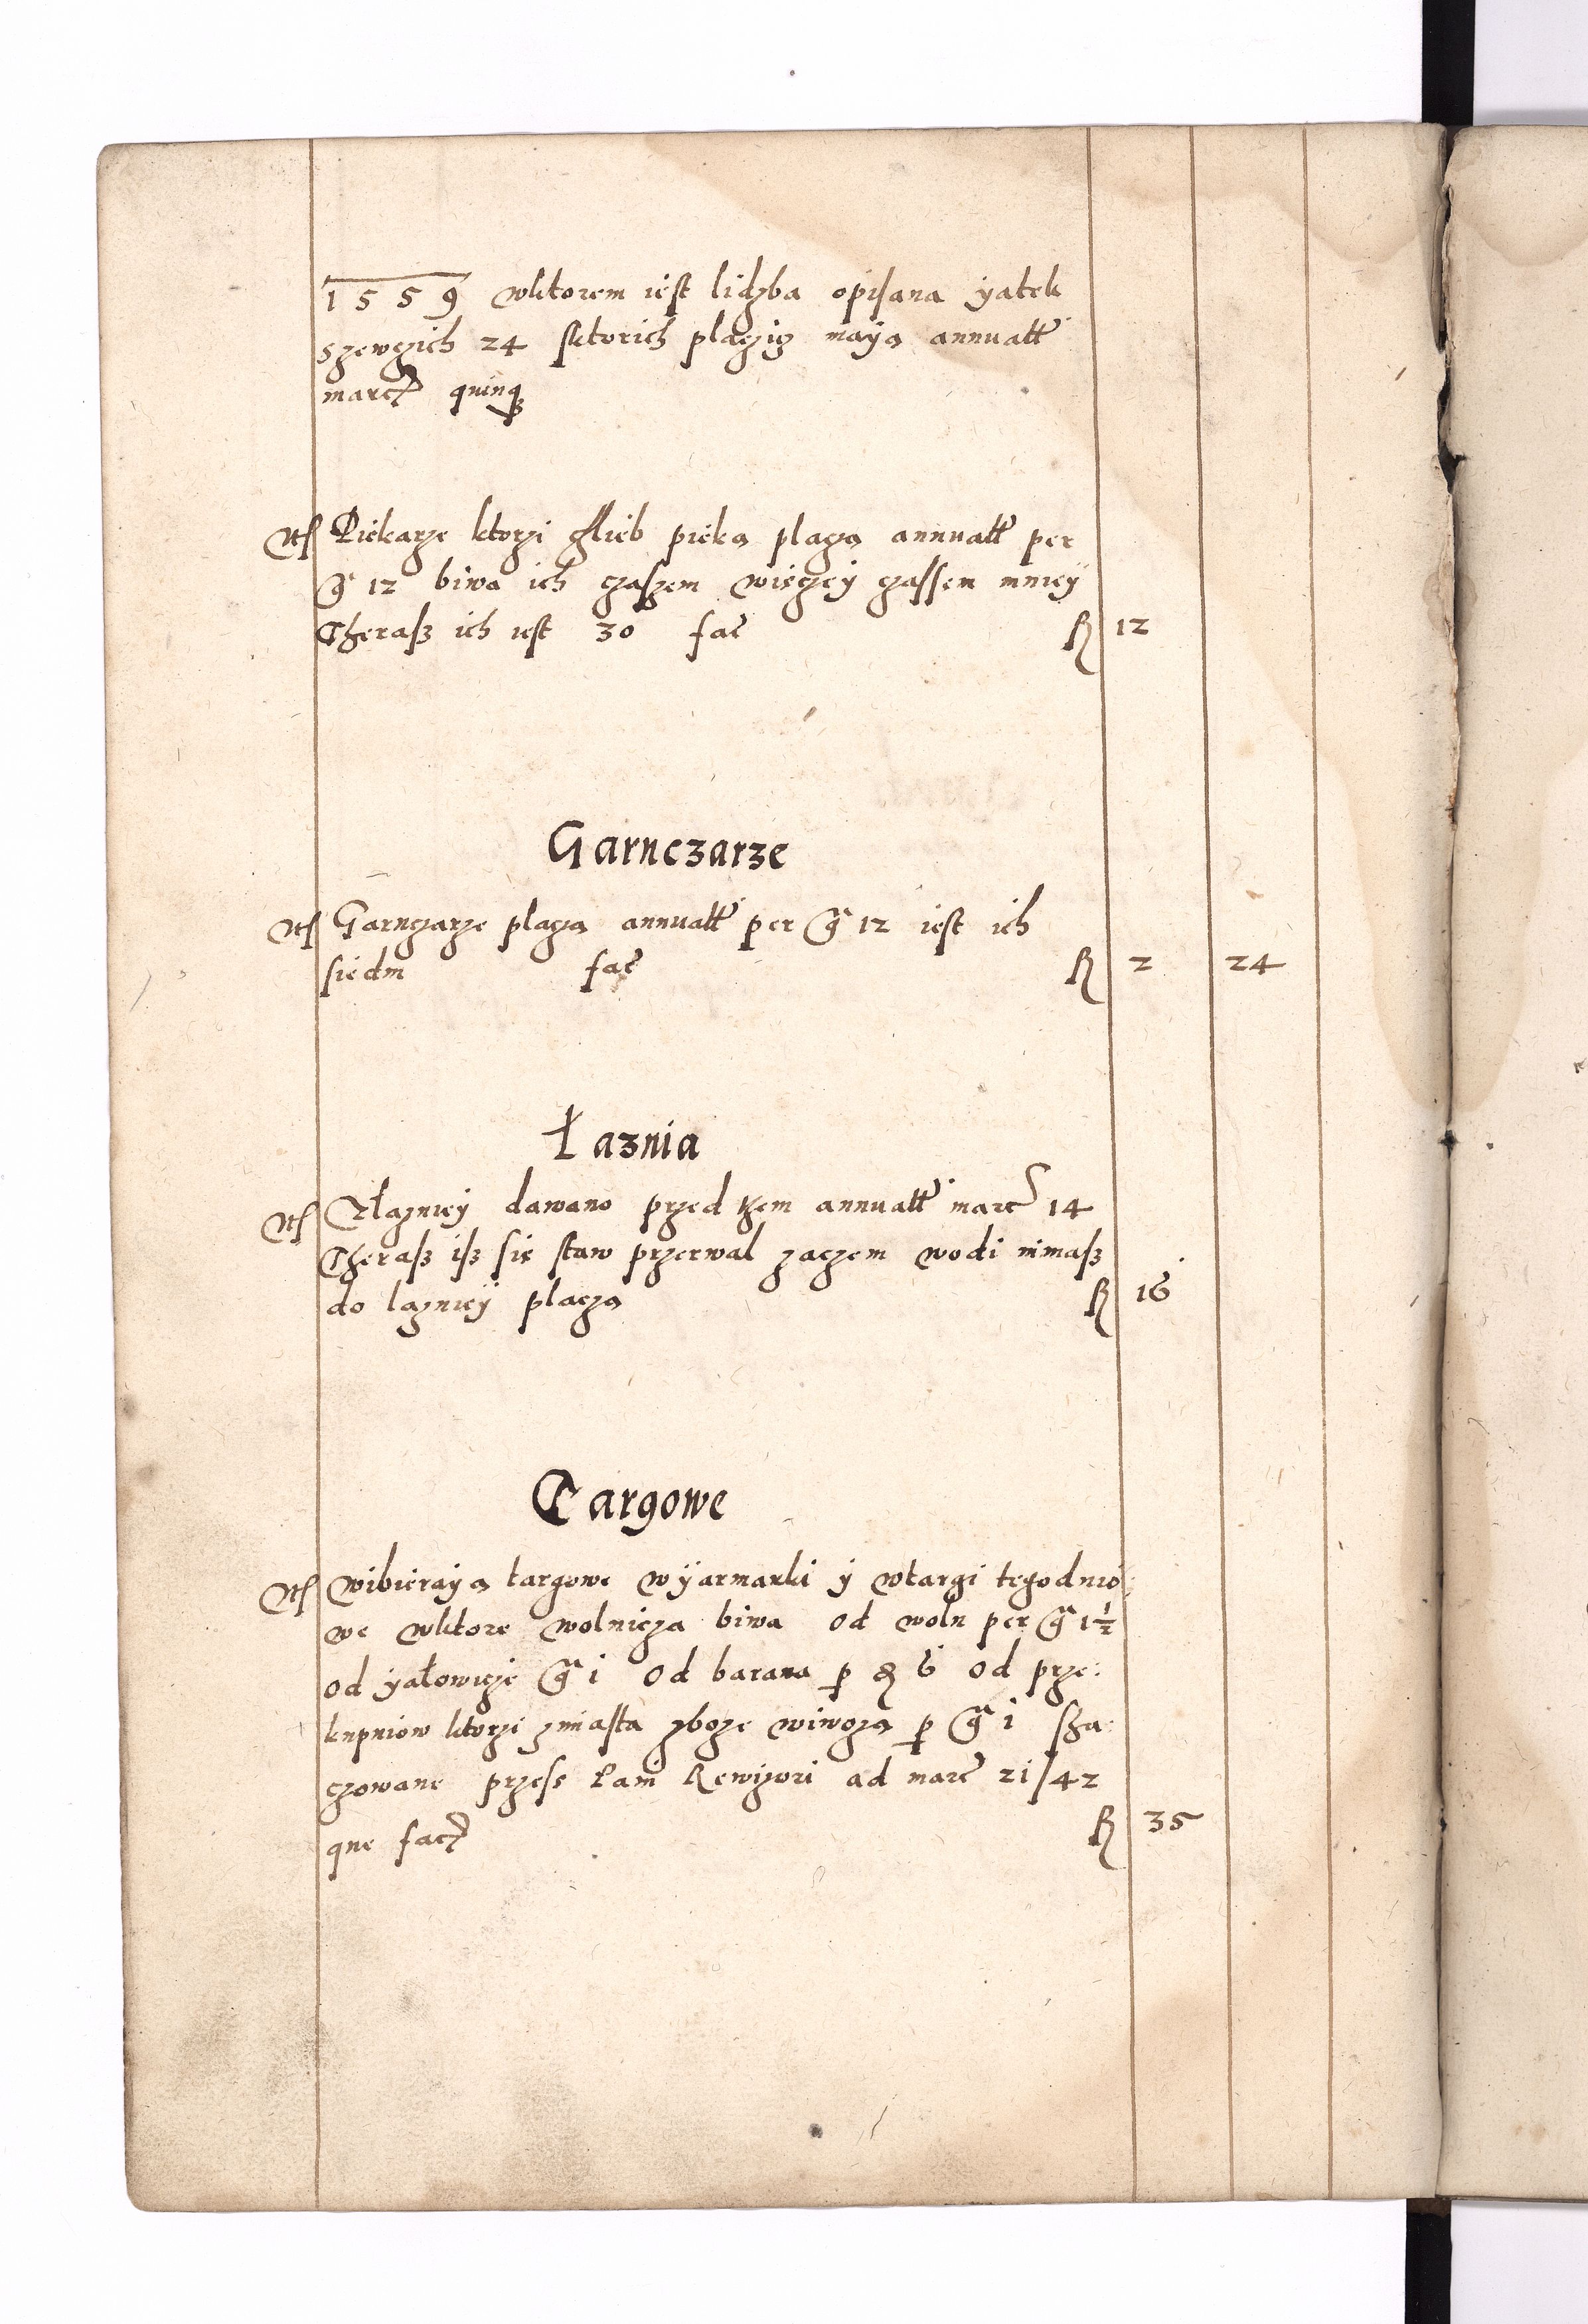 1559 wktorem iest lidzba opisana yatek
szewczich 24 sktorich placzicz maya annuatt
marcr quinq3
Itē Piekarze ktorzi chlieb pieka placza annuatt per
g 12 biwa ich czaszem wieczey czassem mniey
Theraß ich iest 30 fac̄ fl 12
Garnczarze
Itē Garnczarze placza annuatt per g 12 iest ich
siedm fac̄ fl 2 24
Łaznia
Itē Złazniey dawano przed tzem annuatt marc̄ 14
Theraß iß sie staw przerwal zaczem wodi nimaß
do lazniey placza fl 16
Targowe
Itē Wibieraya targowe wyarmarki y wtargi tegodnio:
we wktore wolnicza biwa od woln per g 1½
od yałowicze g i od barana p̱ ₰ 6 od prze:
kupniow ktorzi zmiasta zboze wiwoza p̱ g i sza:
czowane przess Pani Rewizori ad marc̄ 21/42
que facr fl 35